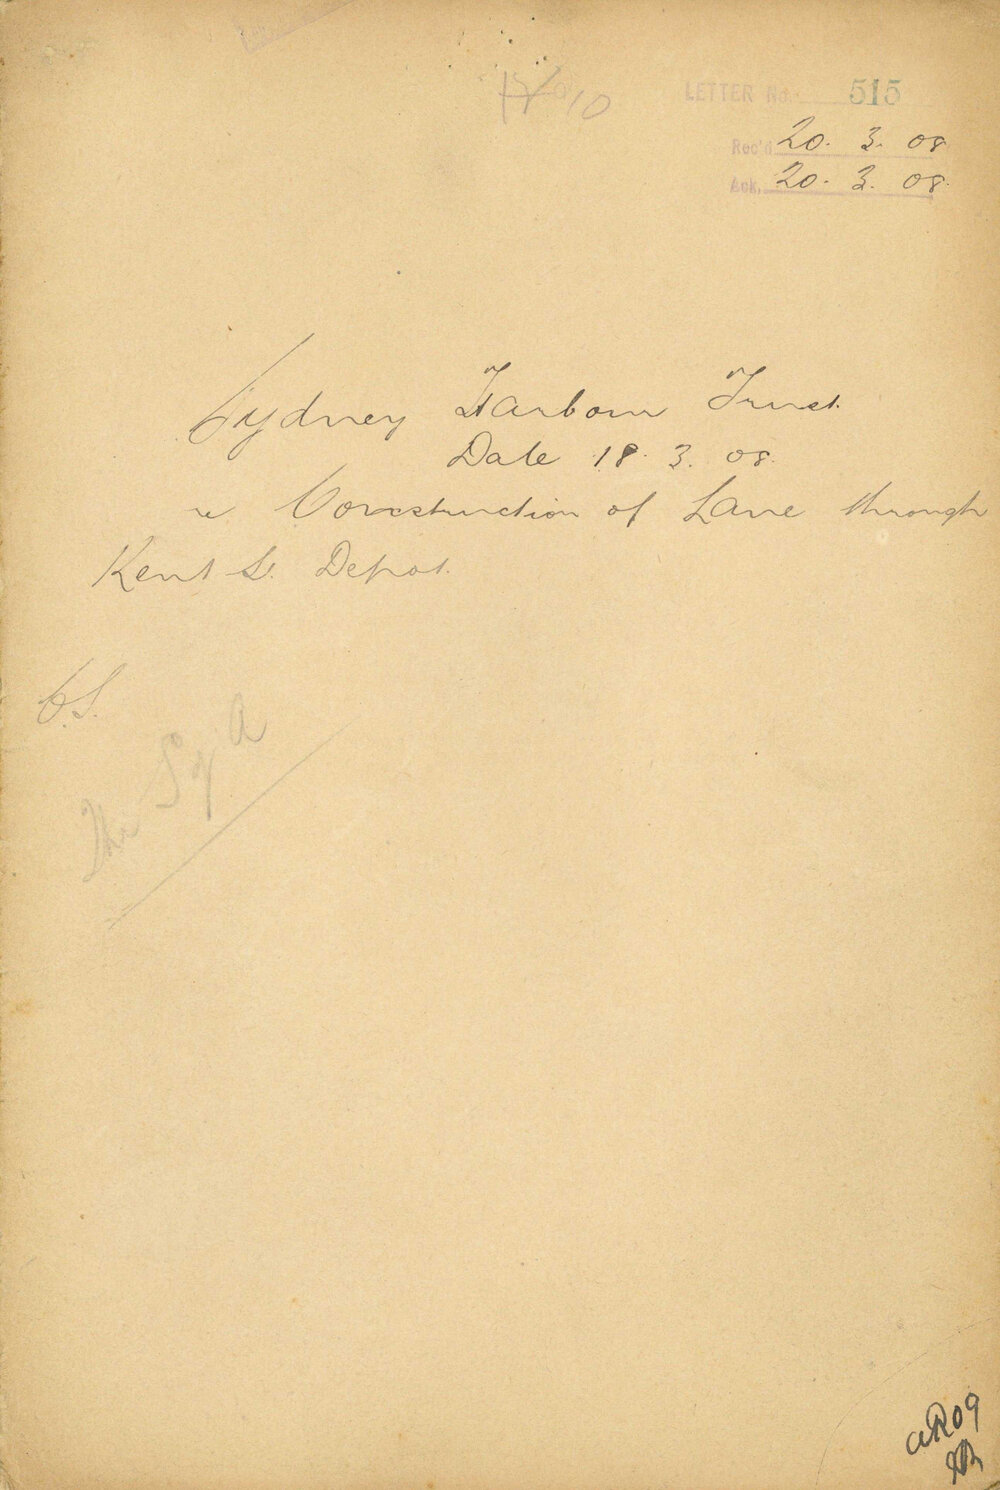 LETTER No. 515
Rec'd 20. 3. 08
Ack. 20. 3. 08.
Sydney Harbour Trust.
Date 18. 3. 08.
re Construction of Lane through
Kent St. Depot.
C.S.
The